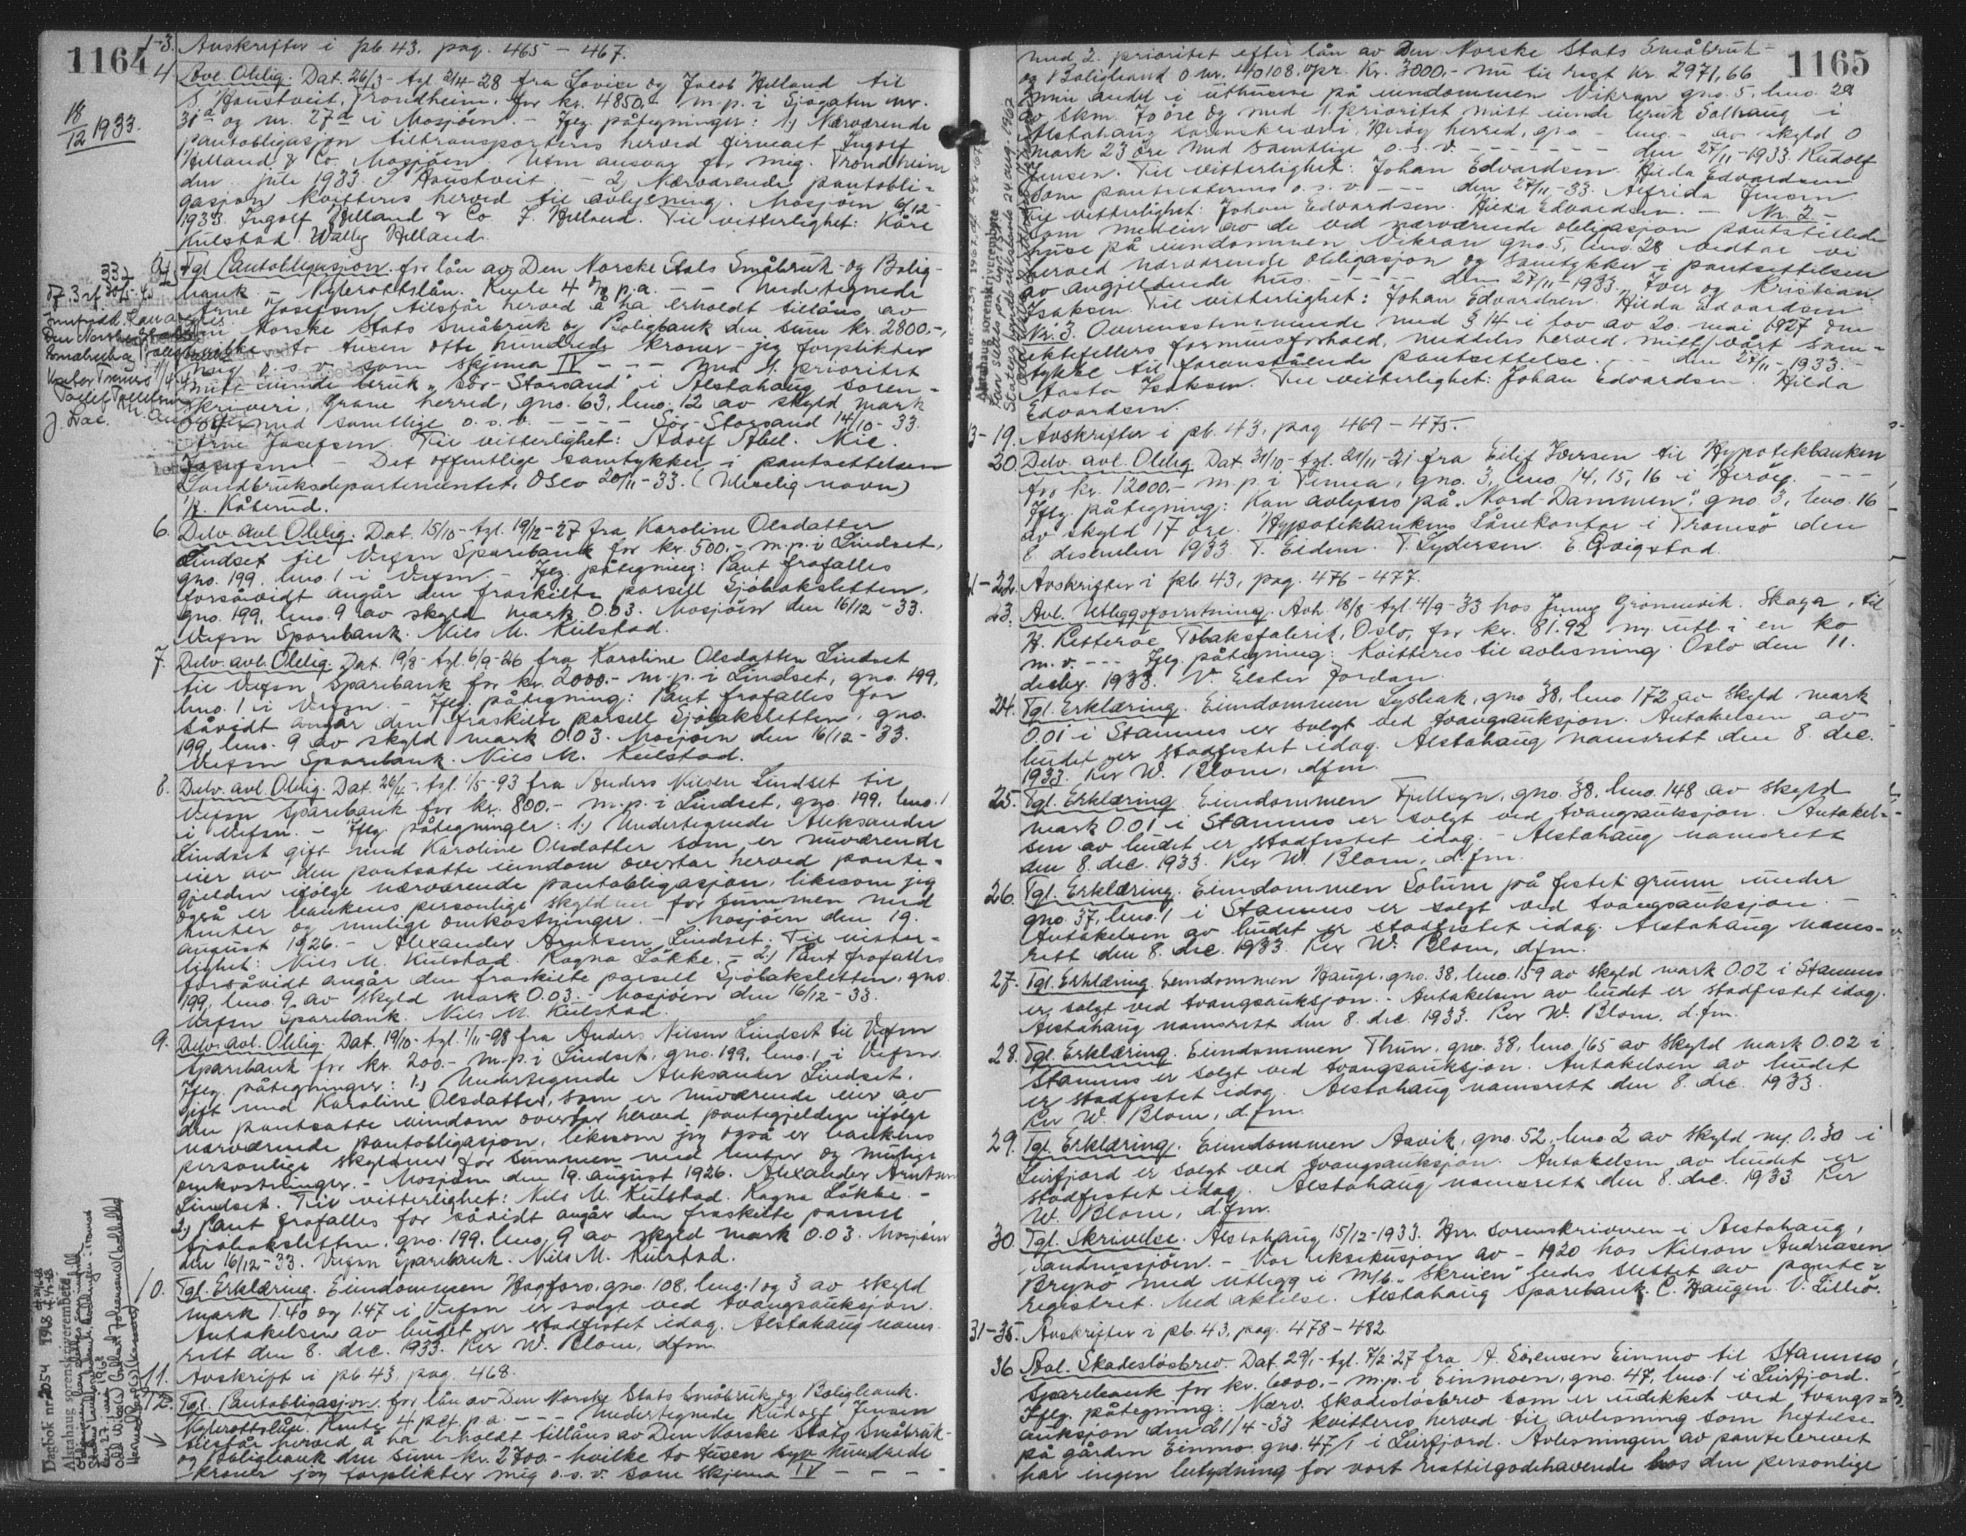 1164
18/12 1933.
1-3. Avskrifter i pb. 43, pag. 465 - 467.
4. Avl. Oblig. Dat. 26/3 - tgl. 2/4 - 28 fra Lovise og Jakob Helland til
Haustveit, Trondheim, for kr. 4850,- m.p. i Sjøgaten nr.
31a og nr. 27d i Mosjøen. - Iflg. påtegninger: 1.) Nærværende
pantobligasjon tiltransporteres herved firmaet Ingolf
Helland & Co. Mosjøen uten ansvar for mig. Trondheim
den jule 1933. Haustveit. - 2.) Nærværende pantobli=
gasjon kvitteres herved til avlysning. Mosjøen 6/12-
1933. Ingolf Helland & Co J. Helland. Til vitterlighet: Kåre
Kulstad. Wally Helland.
5. Tgl. Pantobligasjon for lån av Den Norske Stats Småbruk- og Bolig-
bank - Nybrottslån. Rente 4 % p.a. - - Undertegnede
Arne Josefsen tilstår herved å ha erholdt tillåns av
Den Norske Stats Småbruk og Boligbank den sum kr. 2800.-,
hvilke to tusen otte hundrede kroner - jeg forplikter
mig o.s.v. som skjema IV - - - med 1. prioritet
mitt eiende bruk "Sør-Storsand" i Alstahaug soren-
skriveri, Grane herred, gno. 63, bno. 12 av skyld mark
0.84 med samtlige o.s.v. - - - - - Sør-Storsand 14/10 - 33.
Arne Josefsen. Til vitterlighet: Adolf Abel. Nic.
Josefsen. - Det offentlige samtykker i pantsettelsen
Landbruksdepartementet, Oslo 20/11 - 33. (Uleselig navn)
Kåserud.
6. Delv. avl. Oblig. Dat. 15/10 - tgl. 19/12 - 27 fra Karoline Olsdatter
Lindset til Vefsn Sparebank for kr. 500.- m.p. i Lindset,
gno. 199, bno. 1 i Vefsn. - Iflg. påtegning: Pant frafalles
forsåvidt angår den fraskilte parsell Sjåbakksletten,
gno. 199, bno. 9 av skyld mark 0.03. Mosjøen den 16/12 - 33.
Vefsn Sparebank. Nils M. Kulstad.
7. Delv. avl. Oblig. Dat. 19/8 - tgl. 6/9 - 26 fra Karoline Olsdatter Lindset
til Vefsn Sparebank for kr. 2000.- m.p. i Lindset, gno. 199,
bno. 1 i Vefsn. - Iflg. påtegning: Pant frafalles for
såvidt angår den fraskilte parsell Sjåbaksletten, gno.
199, bno. 9 av skyld mark 0.03. Mosjøen den 16/12 - 33.
Vefsn Sparebank. Nils M. Kulstad.
8. Delv. avl. Oblig. Dat. 26/4 - tgl. 1/5 - 93 fra Anders Nilsen Lindset til
Vefsn Sparebank for kr. 800.- m.p. i Lindset, gno. 199, bno. 1
i Vefsn. - Iflg. påtegninger: 1.) Undertegnede Aleksander
Lindset gift med Karoline Olsdatter som er nuværende
eier av den pantsatte eiendom overtar herved pante=
gjelden ifølge nærværende pantobligasjon, likesom jeg
også er bankens personlige skyldner for summen med
renter og mulige omkostninger. - Mosjøen den 19.
august 1926. - Alexander Arntsen Lindset. Til vitter=
lighet: Nils M. Kulstad. Ragna Løkke. - 2.) Pant frafalles
forsåvidt angår den fraskilte parsell Sjåbaksletten, gno.
199, bno. 9 av skyld mark 0.03. - Mosjøen den 16/12 - 33.
Vefsn Sparebank. Nils M. Kulstad.
9. Delv. avl. Oblig. Dat. 19/10 - tgl. 1/11 - 98 fra Anders Nilsen Lindset til Vefsn
Sparebank for kr. 200.- m.p. i Lindset, gno. 199, bno. 1 i Vefsn
Iflg. påtegninger: 1.) Undertegnede Aleksander Lindset,
gift med Karoline Olsdatter, som er nuværende eier av
den pantsatte eiendom overtar herved pantegjelden ifølge
nærværende pantobligasjon, likesom jeg også er bankens
personlige skyldner for summen med renter og mulige
omkostninger. - Mosjøen den 19. august 1926. Alexander Arntsen
Lindset. Til vitterlighet: Nils M. Kulstad. Ragna Løkke. -
2.) Pant frafalles for såvidt angår den fraskilte parsell
Sjåbaksletten, gno. 199, bno. 9 av skyld mark 0.03. Mosjøen
den 16/12 - 33. Vefsn Sparebank. Nils M. Kulstad.
10. Tgl. Erklæring. Eiendommen Hagfors, gno. 108, bno. 1 og 3 av skyld
mark 1.40 og 1.47 i Vefsn er solgt ved tvangsauksjon.
Antakelsen av budet er stadfestet idag. Alstahaug nams-
rett den 8. dec. 1933. Per W. Blom, dfm.
11. Avskrift i pb. 43, pag. 468.
12. Tgl. Pantobligasjon for lån av Den Norske Stats Småbruk og Boligbank.
Nybrottslån. Rente 4 pct. p.a. - - - Undertegnede Rudolf Jensen
tilstår herved å ha erholdt tillåns av Den Norske Stats Småbruk-
og Boligbank den sum kr. 2700.- hvilke to tusen syv hundrede
kroner jeg forplikter mig o.s.v. som skjema IV - - -
1165
med 2. prioritet efter lån av Den Norske Stats Småbruk-
og Boligbank o nr. 40108. opr. Kr. 3000,- nu til rest kr. 2971,66
min andel i uthusene på eiendommen Vikran gno. 5, bno. 28
av skm. 70 øre og med 1. prioritet mitt eiende bruk Solhaug i
Alstahaug sorenskriveri, Herøy herred, gno. - bno. - av skyld 0
mark 23 øre med samtlige o.s.v. - - - - - - den 27/11 - 1933. Rudolf
Jensen. Til vitterlighet: Johan Edvardsen. Hilda Edvardsen
Som panthaverens o.s.v. - - - den 27/11 - 33. Alfrida Jensen
Til vitterlighet: Johan Edvardsen. Hilda Edvardsen. - Nr. 2 -
Som medeier av de ved nærværende obligasjon pantstillede
huse på eiendommen Vikran gno. 5, bno. 28 vedtar vi
herved nærværende obligasjon og samtykker i pantsettelsen
av angjeldende hus. - - - - den 27/11 - 1933. Iver og Kristian
Isaksen. Til vitterlighet: Johan Edvardsen. Hilda Edvardsen
Nr. 3. Overensstemmende med § 14 i lov av 20. mai 1927 om
ektefellers formuesforhold, meddeles herved mitt/vårt sam=
tykke til foranstående pantsettelse. - - - den 27/11 - 1933. -
Aasta Isaksen. Til vitterlighet: Johan Edvardsen. Hilda
Edvardsen.
13-19. Avskrifter i pb. 43, pag. 469 - 475.
20. Delv. avl. Oblig. Dat. 31/10 - tgl. 21/11 - 21 fra Eilif Iversen til Hypotekbanken
for kr. 12000.- m.p. i Tenna, gno. 3, bno. 14, 15, 16 i Herøy. - -
Iflg. påtegning: Kan avlyses på "Nord Dammen", gno. 3, bno. 16
av skyld 17 øre. Hypotekbankens Lånekontor i Tromsø den
8. desember 1933. T. Eidem. T. Lydersen. E. Qvigstad.
21-22. Avskrifter i pb. 43, pag. 476 - 477.
23. Avl. Utleggsforretning. Avh. 18/8 tgl. 4/9 - 33 hos Jenny Grønnevik, Skaga, til
H. Petterøe Tobaksfabrik, Oslo, for kr. 81.92 m. utl. i en ko
m.v. - - - Iflg. påtegning: Kvitteres til avlesning. Oslo den 11.
desbr. 1933. V. Elster Jordan.
24. Tgl. Erklæring. Eiendommen Lysbak, gno. 38, bno. 172 av skyld mark
0.01 i Stamnes er solgt ved tvangsauksjon. Antakelsen av
budet er stadfestet idag. Alstahaug namsrett den 8. dec.
1933. Per W. Blom, dfm.
25. Tgl. Erklæring. Eiendommen Fjellsyn, gno. 38, bno. 148 av skyld
mark 0.01 i Stamnes er solgt ved tvangsauksjon. Antakel=
sen av budet er stadfestet idag. - Alstahaug namsrett
den 8. dec. 1933. Per W. Blom, d.fm.
26. Tgl. Erklæring. Eiendommen Solum på festet grunn under
gno. 37, bno. 1 i Stamnes er solgt ved tvangsauksjon. -
Antakelsen av budet er stadfestet idag. Alstahaug nams-
rett den 8. dec. 1933. Per W. Blom, dfm.
27. Tgl. Erklæring. Eiendommen Hauge, gno. 38, bno. 159 av skyld mark 0.02 i Stamnes
er solgt ved tvangsauksjon. - Antakelsen av budet er stadfestet idag.
Alstahaug namsrett den 8. dec. 1933. Per W. Blom, d.fm.
28. Tgl. Erklæring. Eiendommen Thun, gno. 38, bno. 165 av skyld mark 0.02 i
Stamnes er solgt ved tvangsauksjon. Antakelsen av budet
er stadfestet idag. Alstahaug namsrett den 8. dec. 1933.
Per W. Blom, d.fm.
29. Tgl. Erklæring. Eiendommen Aasvik, gno. 52, bno. 2 av skyld m. 0.30 i
Leirfjord er solgt ved tvangsauksjon. Antakelsen av budet er
stadfestet idag. Alstahaug namsrett den 8. dec. 1933 Per
W. Blom, d.fm.
30. Tgl. Skrivelse. Alstahaug 15/12 - 1933. Hrr. sorenskriveren i Alstahaug,
Sandnessjøen. - Vor eksekusjon av - 1920 hos Nilson Andreasen
Brynø med utlegg i M/b. "Skreien" bedes slettet av pante=
registret. Med aktelse. Alstahaug Sparebank. C. Haugen. V. Lillio.
31-35. Avskrifter i pb. 43, pag. 478 - 482
36. Avl. Skadesløsbrev. Dat. 29/1 - tgl. 7/2 - 27 fra A. Sørensen Einmo til Stamnes
Sparebank for kr. 6000.- m.p. i Einmoen, gno. 47, bno. 1 i Leirfjord.
Iflg. påtegning: Nærv. skadesløsbrev som er udekket ved tvangs=
auksjon den 21/4 - 33 kvitteres herved til avlesning som heftelse
på gården Einmo gno. 47/1 i Leirfjord. Avlesningen av pantebrevet
har ingen betydning for vort resttilgodehavende hos den personlige